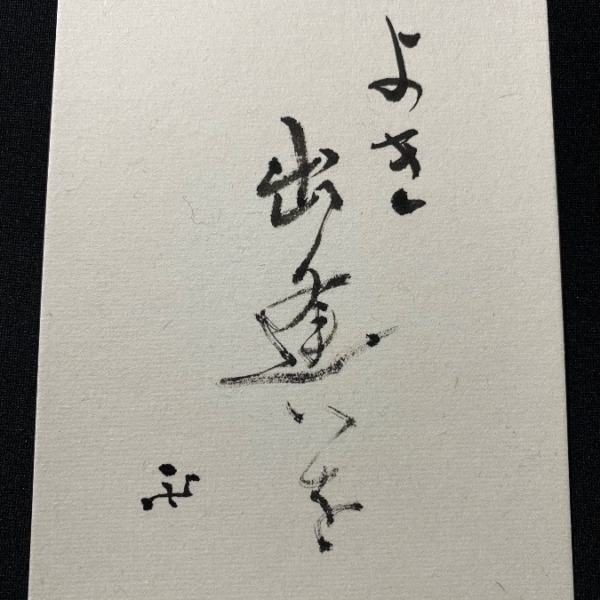 よき
出逢いを